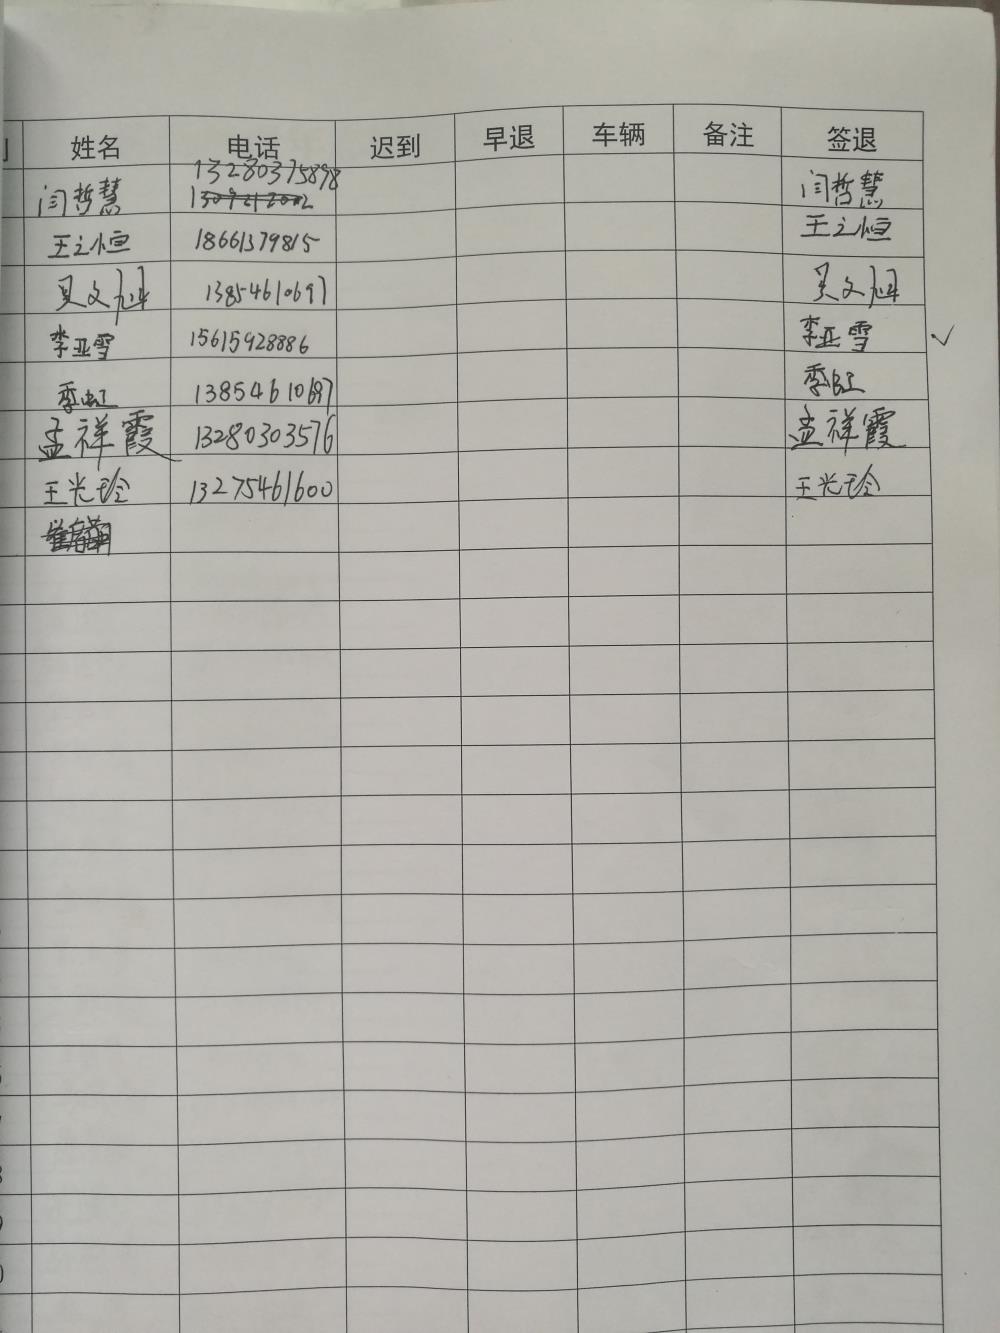 姓名 电话 迟到 早退 车辆 备注 签退
13280375898
闫哲慧 闫哲慧
王之恒 18661379815 王之恒
吴文旭 13854610697 吴文旭
李亚雪 15615928886 李亚雪 ✓
季虹 13854610697 季虹
孟祥霞 13280303576 孟祥霞
王光玲 13275461600 王光玲